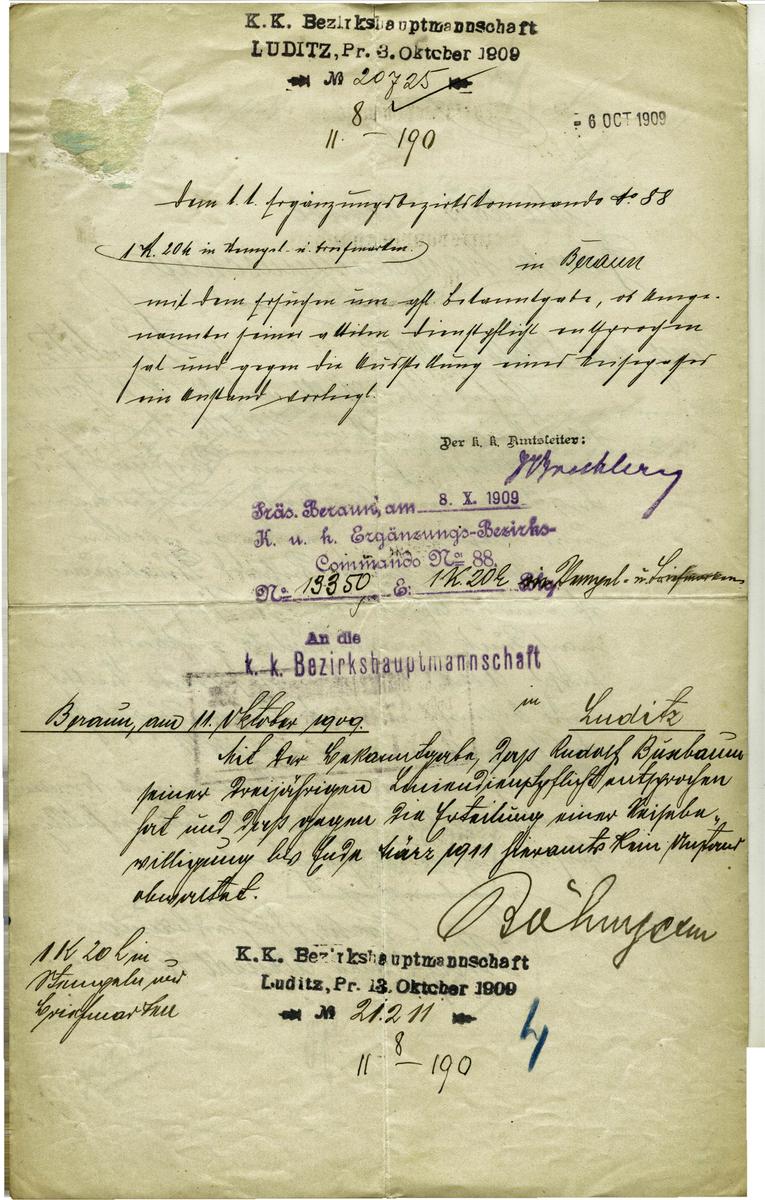 K.K. Bezirkshauptmannschaft
LUDITZ, Pr. 3. Oktober 1909
№ 20725
8
11 — 190
- 6 OCT 1909
Dem k. k. Ergänzungsbezirkskommando No 88
1 K. 20 h in Stempel- u. Briefmarken.
in Beraun
mit dem Ersuchen um gfl. Bekanntgabe, ob Ange-
nannter seiner aktiven Dienstpflicht entsprochen
hat und gegen die Ausstellung eines Reisepasses
ein Anstand vorliegt.
Der k. k. Amtsleiter:
Präs. Beraun, am 8. X. 1909
K. u. k. Ergänzungs-Bezirks-
Commando No 88.
No 13350 E: 1K20h in Stempel- u. Briefmarken
An die
k. k. Bezirkshauptmannschaft
in Luditz
Beraun, am 11. Oktober 1909.
Mit der Bekanntgabe, daß Rudolf Buxbaum
seiner dreijährigen Liniendienstpflicht entsprochen
hat und daß gegen die Erteilung einer Reisebe-
willigung bis Ende März 1911 hieramts kein Anstand
obwaltet.
1 K 20 h in
Stempeln und
Briefmarken
K.K. Bezirkshauptmannschaft
Luditz, Pr. 13. Oktober 1909
№ 21.211
8
11 — 190
4